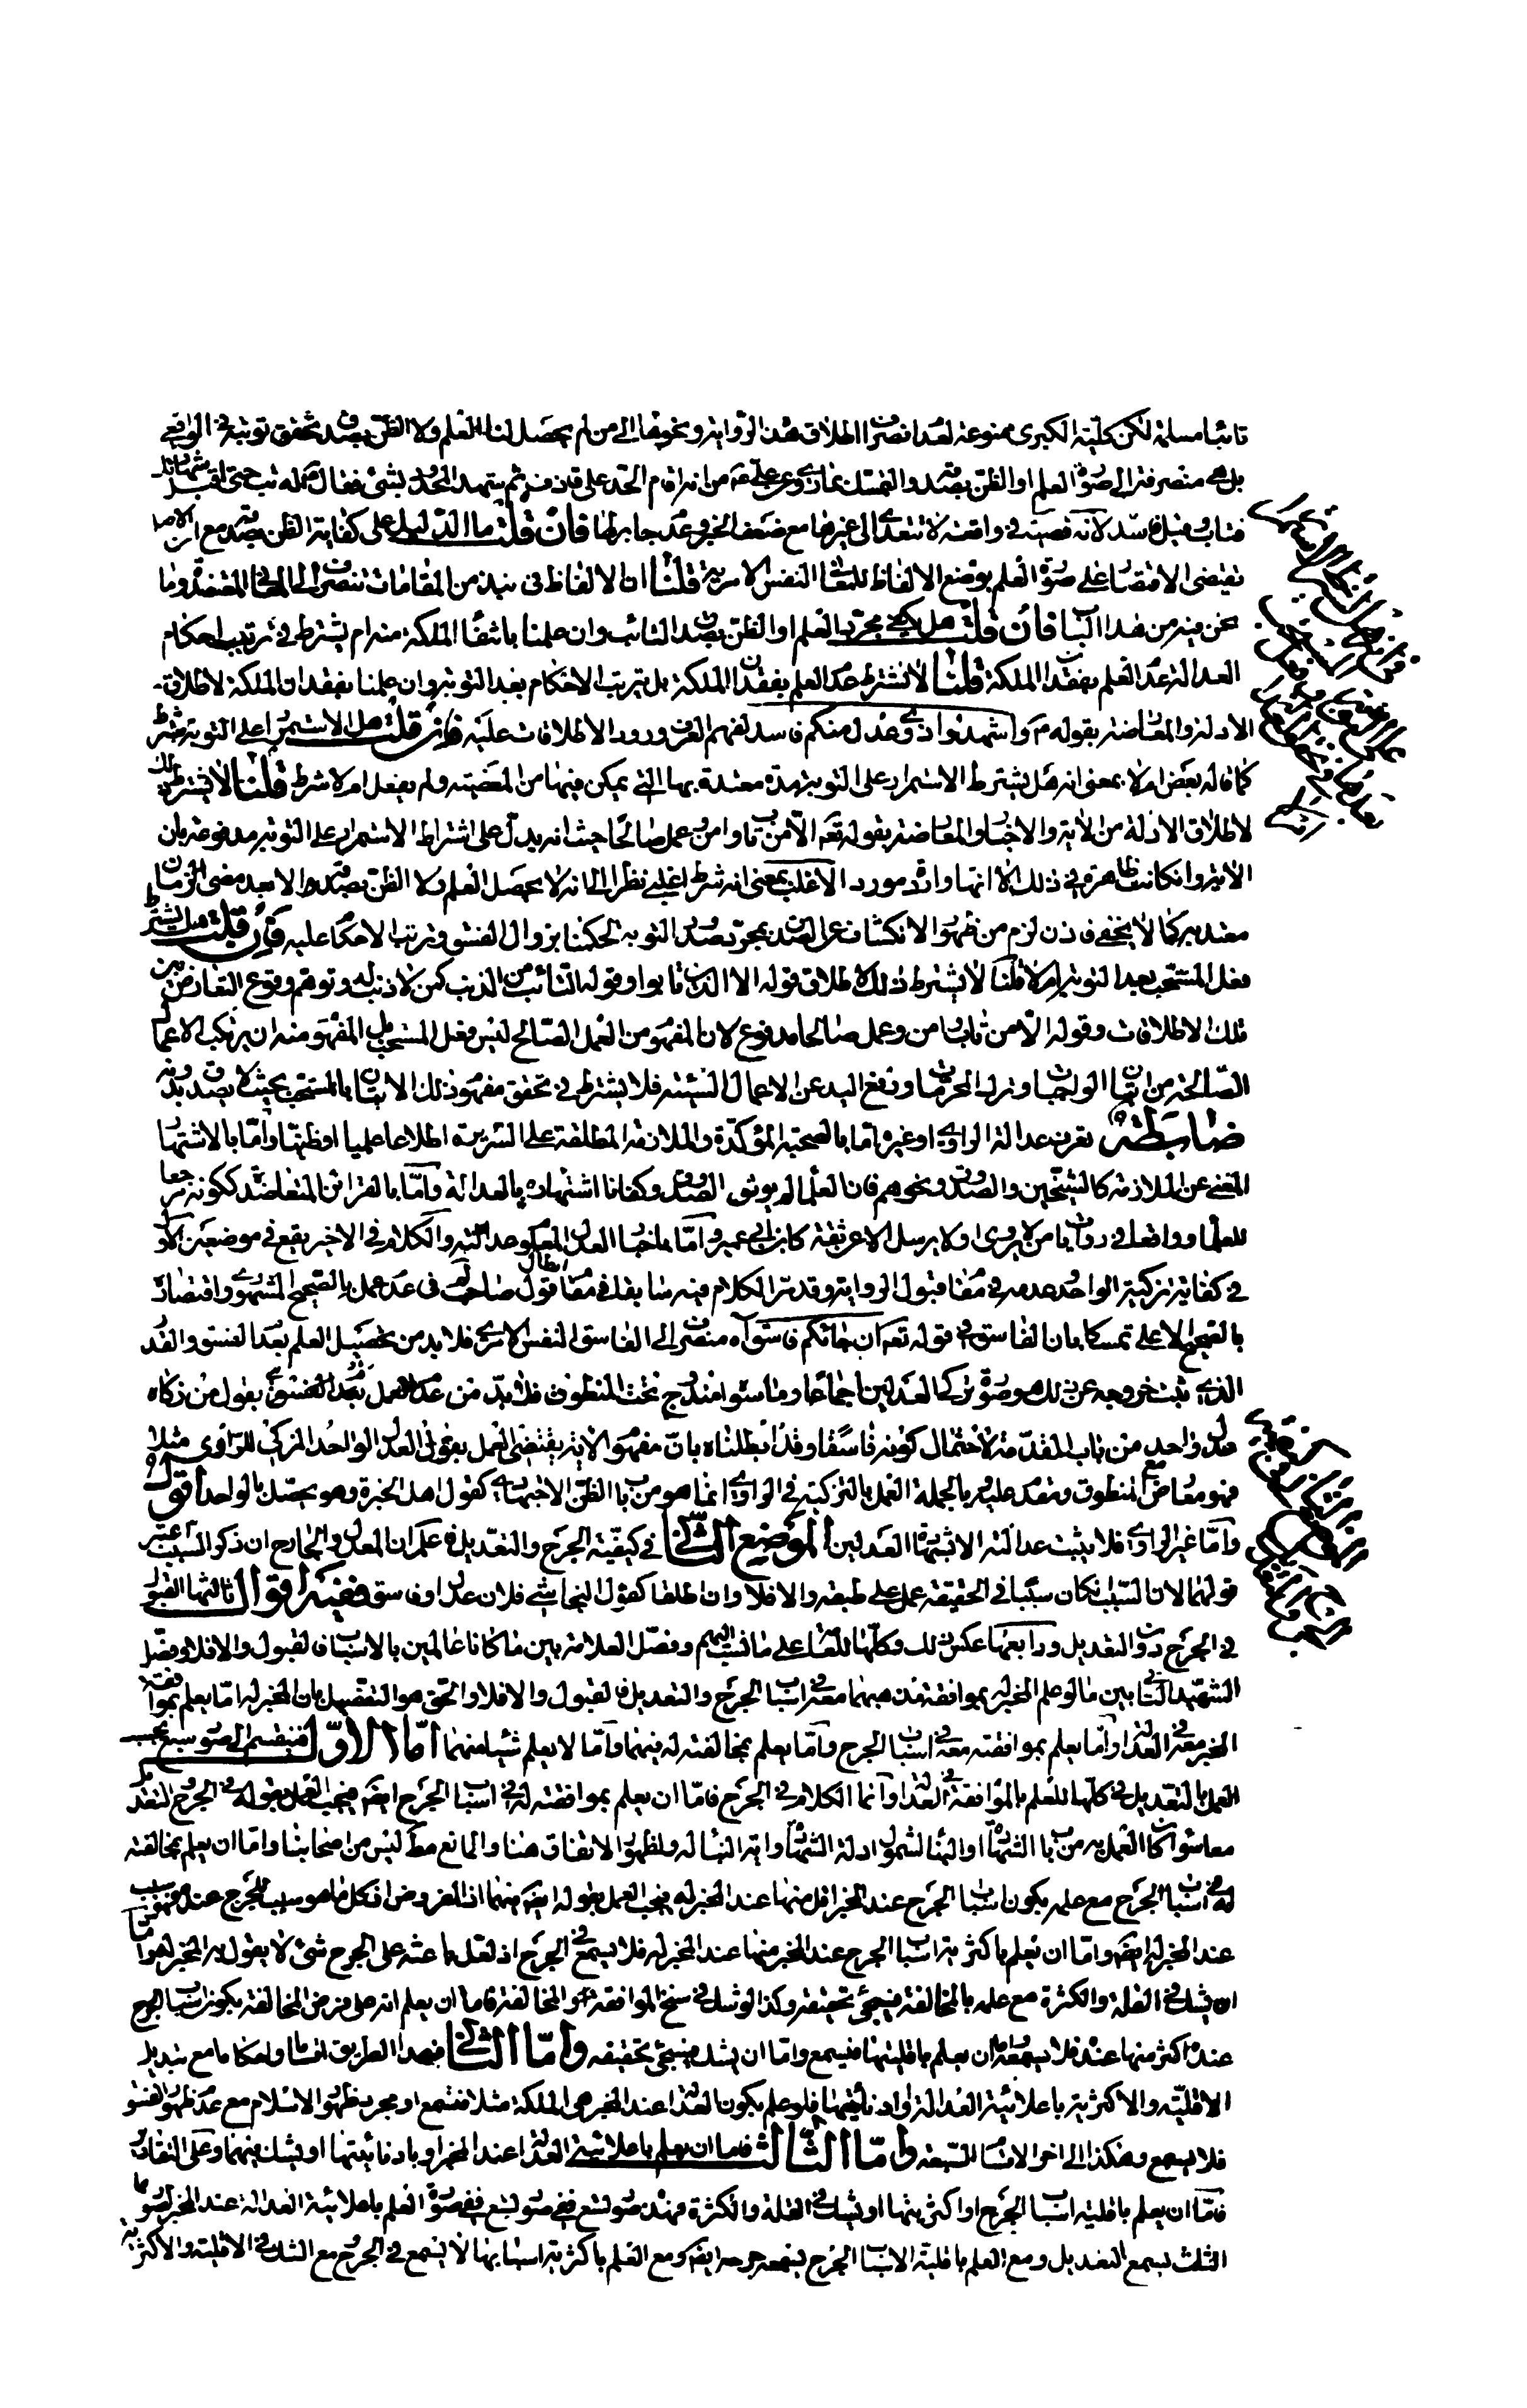 تائبا مسلمة لكن كلية الكبرى ممنوعة لعدم انصراف اطلاق هذه الرواية ونحوها الى من لم يحصل لنا العلم ولا الظن بصدقه تحقق توبته في الواقع
بل هي منصرفة الى صورة العلم او الظن بصدقه والتمسك بما روي عن علي ع من انه اقام الحد على قاذف ثم شهد المحدود بشئ فقال له تب حتى اقبل شهادتك
فتاب وقبل فاسد لانه قضية في واقعة لا تتعدى الى غيرها مع ضعف الخبر وعدم جابر لها فان قلت ما الدليل على كفاية الظن بصدقه مع ان الاصل
يقتضي الاقتصار على صورة العلم بوضع الالفاظ للمعاني النفس الامرية قلنا ان الالفاظ في نبذ من المقامات تنصرف الى المعاني المعتقدة وما
نحن فيه من هذا الباب فان قلت هل يكفي مجرد العلم او الظن بصدق التائب وان علمنا بانتفاء الملكة منه ام يشترط في ترتيب احكام
العدالة عدم العلم بفقدان الملكة قلنا لا نشترط عدم العلم بفقدان الملكة بل يترتب الاحكام بعد التوبة وان علمنا بفقدان الملكة لاطلاق
الادلة والمعارضة بقوله تع واشهدوا ذوي عدل منكم فاسد لفهم العرف ورود الاطلاقات عليه فان قلت هل الاستمرار على التوبة شرط
كما قاله بعض ام لا بمعنى انه هل يشترط الاستمرار على التوبة مدة معتدة بها التي يمكن فيها من المعصية ولم يفعل ام لا شرط قلنا لا يشترط ذلك
لاطلاق الادلة من الاية والاخبار والمعارضة بقوله تعه الا من تاب وامن وعمل صالحا حيث انه يدل على اشتراط الاستمرار على التوبة مدفوعة بان
الاية وان كانت ظاهرة في ذلك الا انها واردة مورد الاغلب بمعنى انه شرط اغلبي نظرا الى انه لا يحصل العلم ولا الظن بصدقه الا بعد مضي الزمان
معتد به كما لا يخفى فاذن لزم من ظهور الانكشاف عن الصدق بمجرد صدور التوبة لحكمنا بزوال الفسق وترتب الاحكام عليه فان قلت هل يشترط
فعل المستحب بعد التوبة ام لا قلنا لا يشترط ذلك لاطلاق قوله الا الذين تابوا وقوله التائب من الذنب كمن لا ذنب له وتوهم وقوع التعارض بين
تلك الاطلاقات وقوله الا من تاب وامن وعمل صالحا مدفوع لان المفهوم من العمل الصالح ليس فعل المستحب بل المفهوم منه ان يرتكب الاعمال
الصالحة من اتيان الواجبات وترك المحرمات ورفع اليد عن الاعمال السيئة فلا يشترط في تحقق مفهوم ذلك الاتيان بالمستحب بحيث لا يصدق بدونه
ضابطة تعرف عدالة الراوي او غيره اما بالصحبة المؤكدة والملازمة المطلعة على السريرة اطلاعا علميا او ظنيا واما بالاشتهار
المغني عن الملازمة كالشيخين والصدوق ونحوهم فان العلماء لم يوثقوا الصدوق وكفانا اشتهاره بالعدالة واما بالقرائن المتعاضدة ككونه مرجعا
للعلماء وواقعا في روايات من لا يروي او لا يرسل الا عن ثقة كابن ابي عمير واما باخبار العدل المعلوم عدالته والكلام في الاخير يقع في موضعين الاول
في كفاية تزكية الواحد وعدمه في مقام قبول الرواية وقد مر الكلام فيه سابقا في مقام ابطال قول صاحب لم في عدم عمله بالصحيح المشهوري واقتصاره
بالصحيح الاعلى تمسكا بان الفاسق في قوله تعه ان جائكم فاسق اه منصرف الى الفاسق النفس الامري فلا بد من تحصيل العلم بعدم الفسق والقدر
الذي ثبت خروجه عن ذلك هو صورة تزكية العدلين اجماعا وما سواه مندرج تحت المنطوق فلا بد من عدم العمل بقول من زكاه
عدل واحد من باب المقدمة لاحتمال كونه فاسقا وقد ابطلناه بان مفهوم الاية يقتضي العمل بقول العدل الواحد المزكي للراوي مثلا
فهو معارض مع المنطوق ومقدم عليه وبالجملة العمل بالتزكية في الراوي انما هو من باب الظن الاجتهادي كقول اهل الخبرة وهو يحصل بالواحد اقول
واما غير الراوي فلا يثبت عدالته الا بشهادة العدلين الموضع الثاني في كيفية الجرح والتعديل فاعلم ان المعدل والجارح ان ذكر السبب اعتبر
قولهما لان السبب ان كان سببا في الحقيقة عمل على طبقه والا فلا وان اطلقا كقول النجاشي فلان عدل او فاسق ففيه اقوال ثالثها القبول
في الجرح دون التعديل ورابعها عكس ذلك وكلها للقدماء على ما نسب اليهم وفصل العلامة بين ما كانا عالمين بالاسباب فالقبول والا فلا وفصل
الشهيد الثاني بين ما لو علم المخبر له بموافقة مذهبهما معه في اسباب الجرح والتعديل فالقبول والا فلا والحق هو التفصيل بان المخبر له اما يعلم بموافقة
المخبر معه في العدالة او اما يعلم بموافقته معه في اسباب الجرح واما يعلم بمخالفته له فيهما واما لا يعلم شيئا منهما اما الاول فينقسم الى صور سبع يجب
العمل بالتعديل في كلها للعلم بالموافقة في العدالة وانما الكلام في الجرح فاما ان يعلم بموافقته له في اسباب الجرح ايضا فيجب العمل بقوله في الجرح والتعديل
معا سواء كان العمل به من باب الشهادة او النبأ لشمول ادلة الشهادة واية النبأ له ولظهور الاتفاق هنا والمانع مط ليس من اصحابنا واما ان يعلم بمخالفته
له في اسباب الجرح مع علمه بكون اسباب الجرح عند المخبر اقل منها عند المخبر له فيجب العمل بقوله ايضا فيهما اذ المفروض ان كل ما هو سبب للجرح عنده فهو سبب
عند المخبر له ايضا واما ان يعلم باكثرية اسباب الجرح عند المخبر منها عند المخبر له فلا يسمع في الجرح اذ لعل باعثه على الجرح شئ لا يقول به المخبر له واما
ان يشك في القلة والكثرة مع علمه بالمخالفة فيجئ تحقيقه وكذا لو شك في سنخ الموافقة والمخالفة فاما ان يعلم انه على فرض المخالفة يكون اسباب الجرح
عنده اكثر منها عنده فلا يسمع واما ان يعلم باقليتها فيسمع واما ان يشك فسيجئ تحقيقه واما الثاني فبهذا الطريق اقساما واحكاما مع تبديل
الاقلية والاكثرية باعلائية العدالة وادنائيتها فلو علم بكون العدالة عند المخبر هي الملكة مثلا فتسمع او مجرد ظهور الاسلام مع عدم ظهور الفسق
فلا يسمع وهكذا الى اخر الاقسام السبعة واما الثالث فاما ان يعلم باعلائية العدالة عند المخبر او بادنائيتها او يشك فيهما وعلى التقادير
فاما ان يعلم باقلية اسباب الجرح او اكثريتها او يشك في القلة والكثرة فهذه صور تسع ففي صورة العلم باعلائية العدالة عند المخبر بصورها
الثلث يسمع التعديل ومع العلم باقلية الاسباب الجرح يسمع جرحه ايضا ومع العلم باكثرية اسبابها لا يسمع في الجرح مع الشك في الاقلية والاكثرية